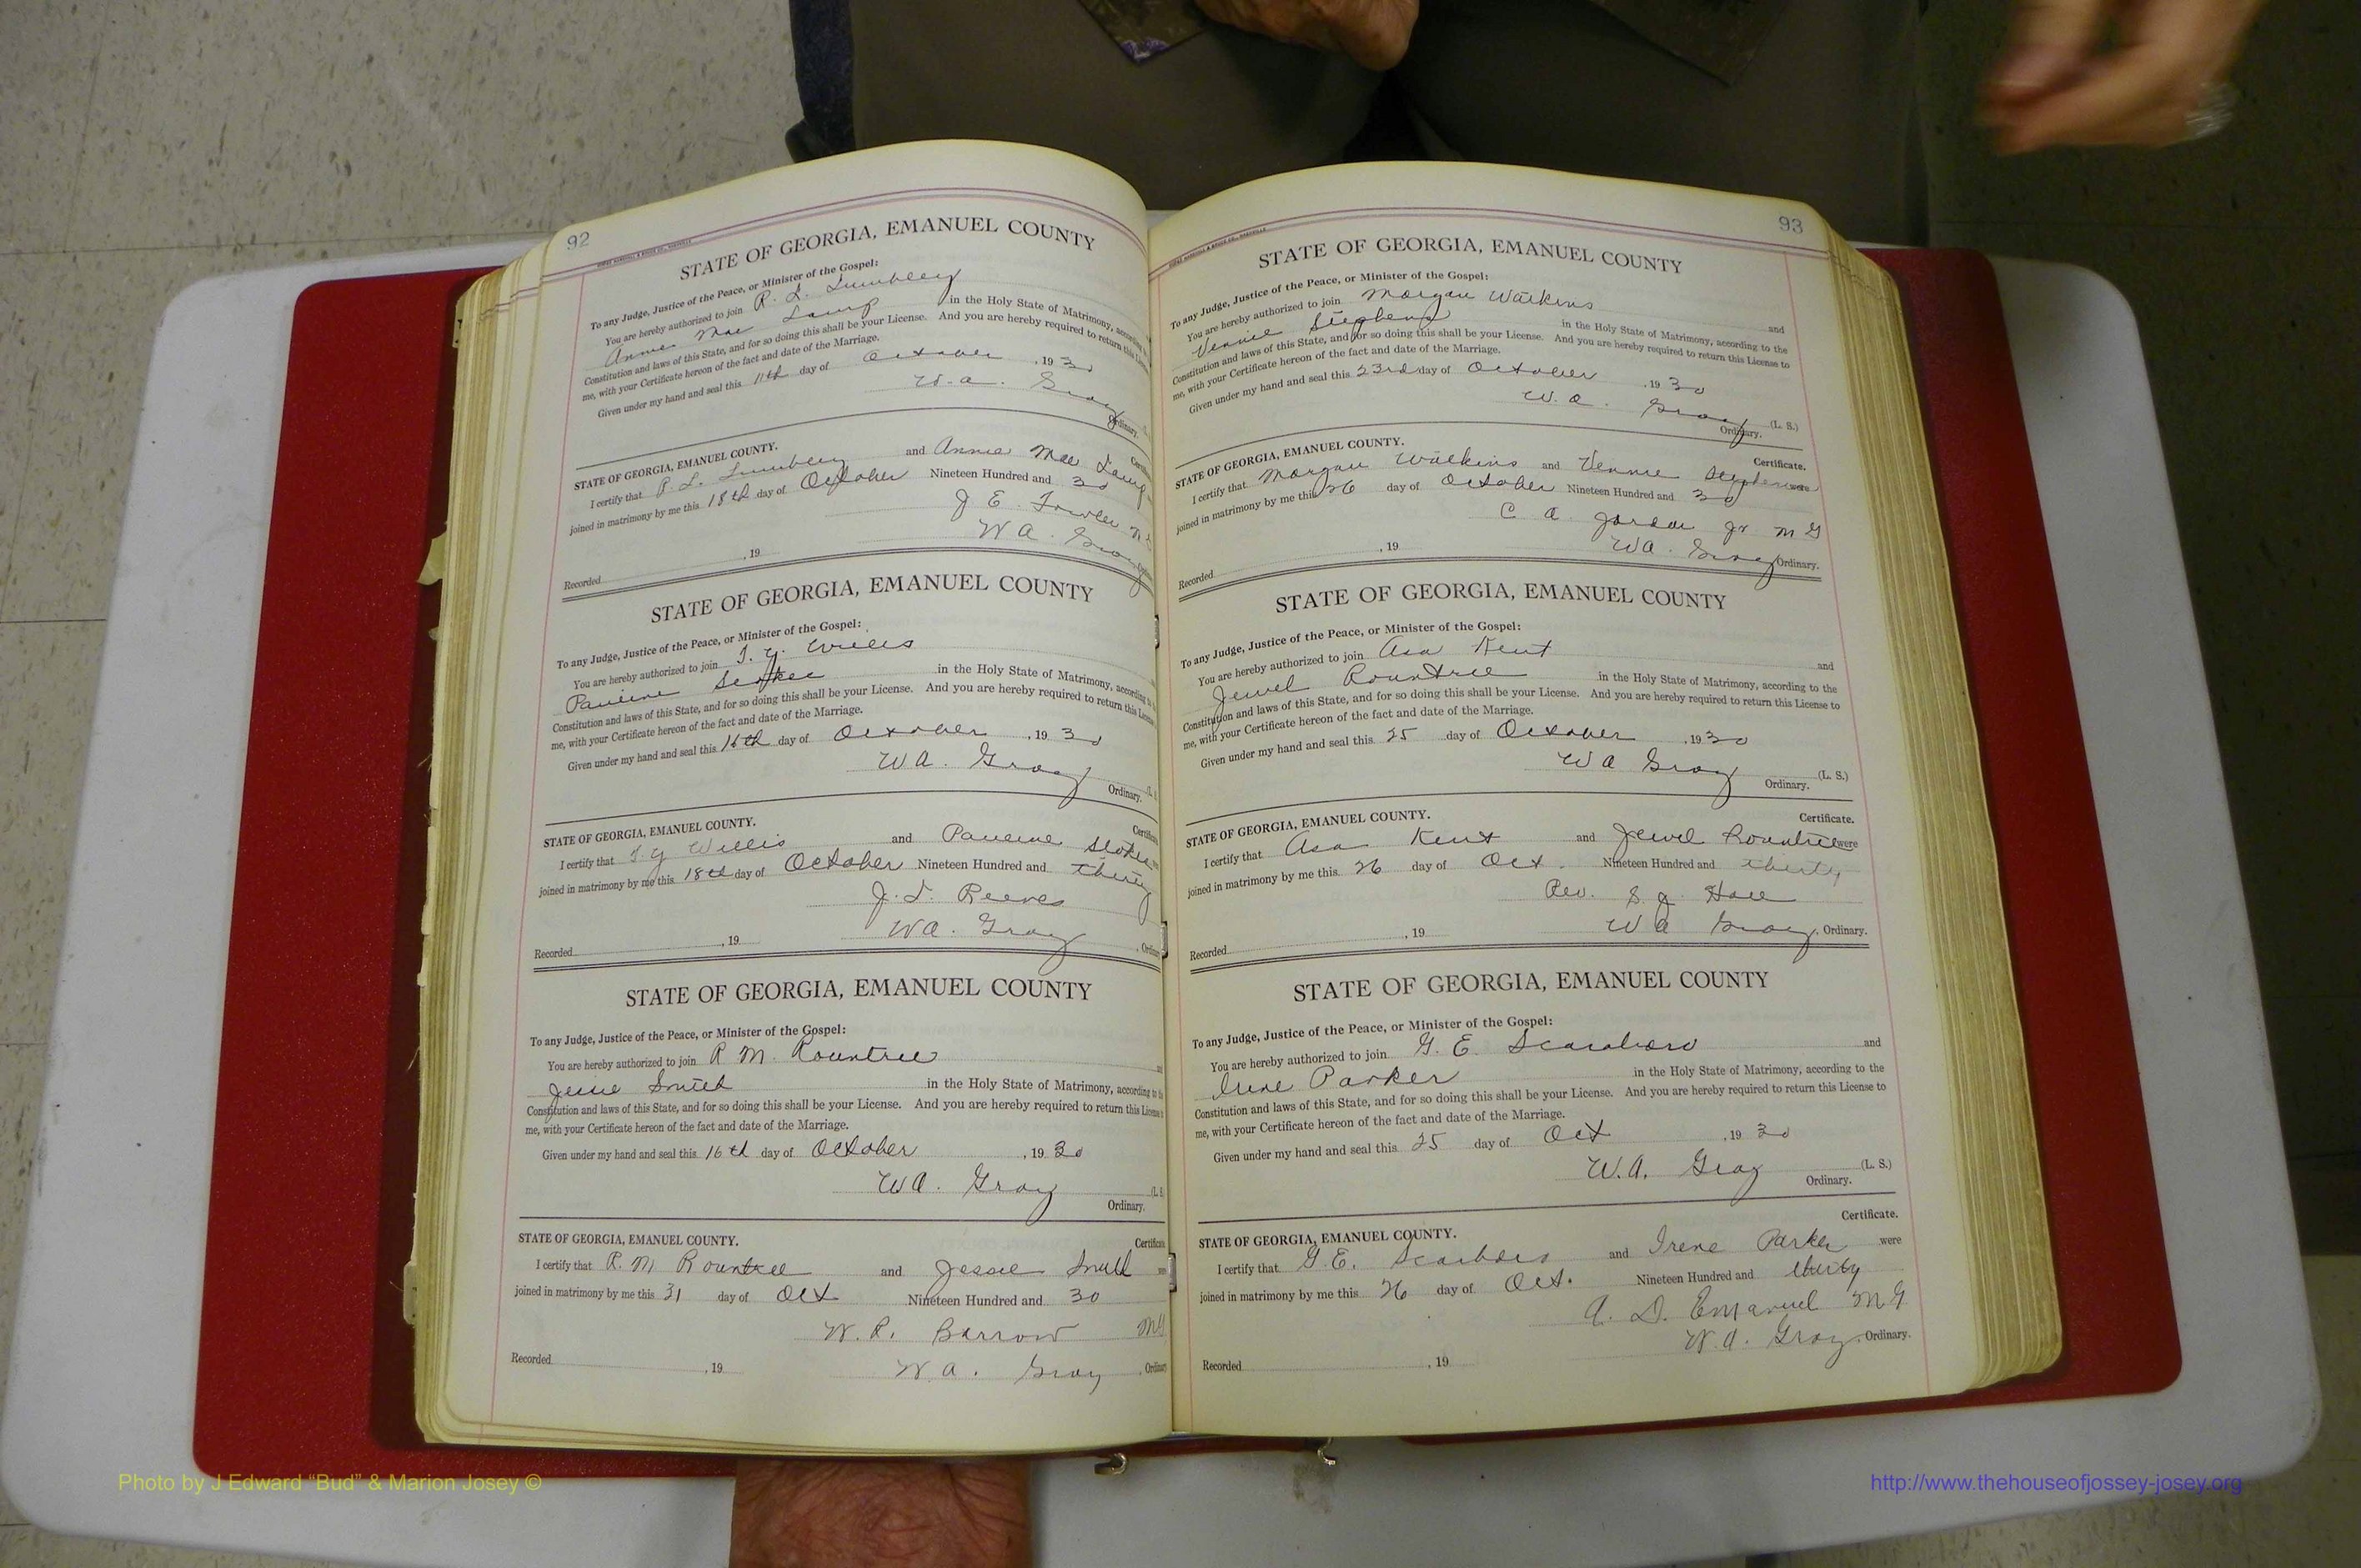 92
STATE OF GEORGIA, EMANUEL COUNTY
To any Judge, Justice of the Peace, or Minister of the Gospel:
You are hereby authorized to join R. L. Lumbley
Annie Mae Lamp in the Holy State of Matrimony, according
Constitution and laws of this State, and for so doing this shall be your License. And you are hereby required to return this License
me, with your Certificate hereon of the fact and date of the Marriage.
Given under my hand and seal this 11th day of October , 1930
W. A. Gray
Ordinary.
STATE OF GEORGIA, EMANUEL COUNTY.
I certify that R. L. Lumbley and Annie Mae Lamp
joined in matrimony by me this 18th day of October Nineteen Hundred and 30
J E. Fowler
WA. Gray
Recorded , 19
STATE OF GEORGIA, EMANUEL COUNTY
To any Judge, Justice of the Peace, or Minister of the Gospel:
You are hereby authorized to join T. Y. Willis
Pauline in the Holy State of Matrimony, according
Constitution and laws of this State, and for so doing this shall be your License. And you are hereby required to return this License
me, with your Certificate hereon of the fact and date of the Marriage.
Given under my hand and seal this 16th day of October , 1930
WA. Gray
Ordinary.
STATE OF GEORGIA, EMANUEL COUNTY.
I certify that T. Y Willis and Pauline
joined in matrimony by me this 18th day of October Nineteen Hundred and thirty
J. L. Reeves
WA. Gray
Recorded , 19
STATE OF GEORGIA, EMANUEL COUNTY
To any Judge, Justice of the Peace, or Minister of the Gospel:
You are hereby authorized to join R M. Rountree
Jessie Smith in the Holy State of Matrimony, according to
Constitution and laws of this State, and for so doing this shall be your License. And you are hereby required to return this License
me, with your Certificate hereon of the fact and date of the Marriage.
Given under my hand and seal this 16th day of October , 1930
WA. Gray
Ordinary.
Certificate
STATE OF GEORGIA, EMANUEL COUNTY.
I certify that R. M Rountree and Jessie Smith
joined in matrimony by me this 31 day of Oct Nineteen Hundred and 30
W. R. Barrow MG
Recorded , 19 W. A. Gray
93
STATE OF GEORGIA, EMANUEL COUNTY
To any Judge, Justice of the Peace, or Minister of the Gospel:
You are hereby authorized to join Morgan Watkins and
Vennie Stephens in the Holy State of Matrimony, according to the
Constitution and laws of this State, and for so doing this shall be your License. And you are hereby required to return this License to
me, with your Certificate hereon of the fact and date of the Marriage.
Given under my hand and seal this 23rd day of October , 1930
W. A. Gray (L. S.)
Ordinary.
Certificate.
STATE OF GEORGIA, EMANUEL COUNTY.
I certify that Morgan Watkins and Vennie Stephens were
joined in matrimony by me this 26 day of October Nineteen Hundred and 30
C A. Jordan Jr M G
Recorded , 19 WA. Gray Ordinary.
STATE OF GEORGIA, EMANUEL COUNTY
To any Judge, Justice of the Peace, or Minister of the Gospel:
You are hereby authorized to join Asa Kent and
Jewel Rountree in the Holy State of Matrimony, according to the
Constitution and laws of this State, and for so doing this shall be your License. And you are hereby required to return this License to
me, with your Certificate hereon of the fact and date of the Marriage.
Given under my hand and seal this 25 day of October , 1930
WA Gray (L. S.)
Ordinary.
Certificate.
STATE OF GEORGIA, EMANUEL COUNTY.
I certify that Asa Kent and Jewel Rountree were
joined in matrimony by me this 26 day of Oct. Nineteen Hundred and thirty
Rev. S. J. Hall
Recorded , 19 W A Gray, Ordinary.
STATE OF GEORGIA, EMANUEL COUNTY
To any Judge, Justice of the Peace, or Minister of the Gospel:
You are hereby authorized to join G. E. Scarboro and
Irene Parker in the Holy State of Matrimony, according to the
Constitution and laws of this State, and for so doing this shall be your License. And you are hereby required to return this License to
me, with your Certificate hereon of the fact and date of the Marriage.
Given under my hand and seal this 25 day of Oct , 1930
W.A. Gray (L. S.)
Ordinary.
Certificate.
STATE OF GEORGIA, EMANUEL COUNTY.
I certify that G.E. Scarboro and Irene Parker were
joined in matrimony by me this 26 day of Oct. Nineteen Hundred and thirty
A. D. Emanuel M.G
W.A. Gray, Ordinary.
Recorded , 19
Photo by J Edward “Bud” & Marion Josey ©
http://www.thehouseofjossey-josey.org